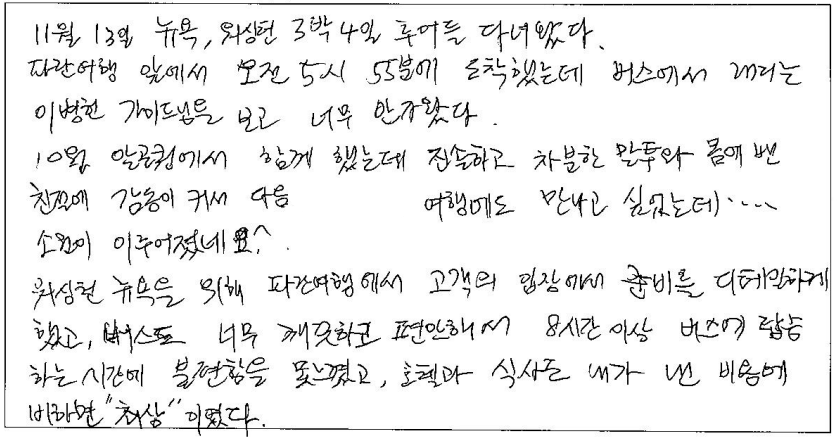 11월 13일 뉴욕, 워싱턴 3박4일 투어를 다녀왔다.
파란여행 앞에서 오전 5시 55분에 도착했는데 버스에서 내리는
이병헌 가이드님을 보고 너무 반가웠다.
10월 알곤퀸에서 함께 했는데 진솔하고 차분한 말투와 몸에 벤
친절에 감동이 커서 다음 여행에도 만나고 싶었는데....
소원이 이루어졌네요^.
워싱턴 뉴욕을 위해 파란여행에서 고객의 입장에서 준비를 디테일하게
했고, 버스도 너무 깨끗하고 편안해서 8시간 이상 버스에 탑승
하는 시간에 불편함을 못느꼈고, 호텔과 식사는 내가 낸 비용에
비하면 "최상"이였다.